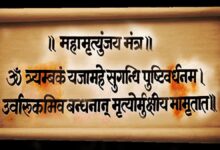 ॥ महामृत्युंजय मंत्र ॥
ॐ त्र्यम्बकं यजामहे सुगन्धि पुष्टिवर्धनम।
उर्वारुकमिव बन्धनान् मृत्योर्मुक्षीय मामृतात॥